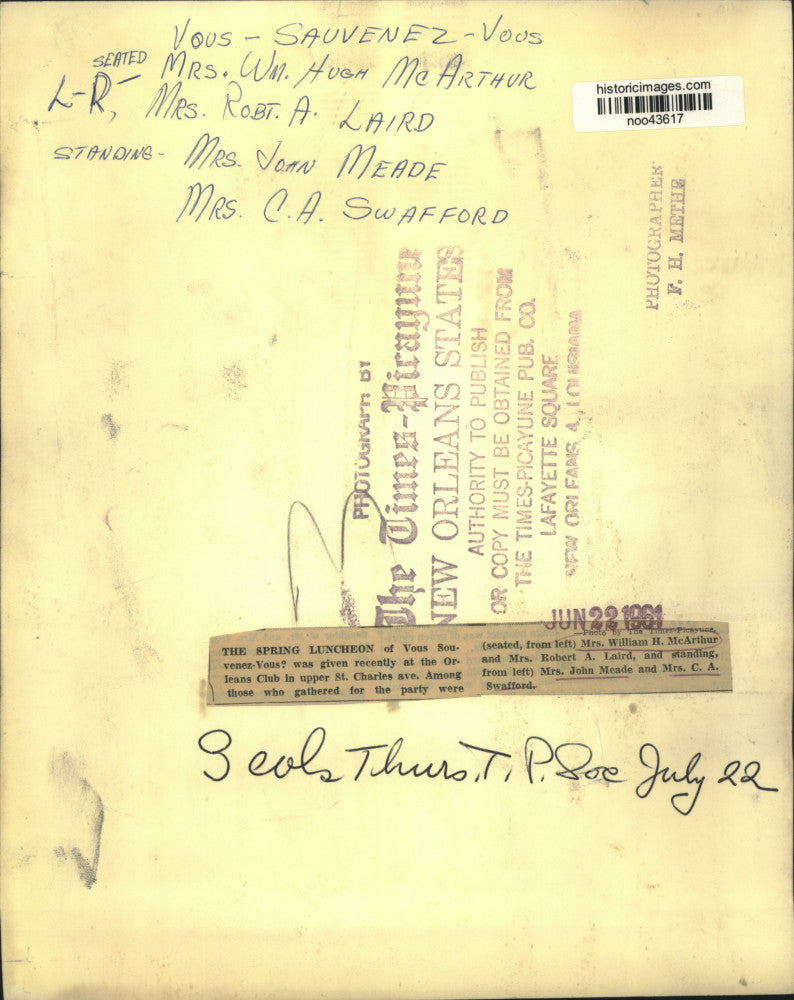 VOUS - SAUVENEZ - VOUS
SEATED
L-R, MRS. WM. HUGH MCARTHUR
MRS. ROBT. A. LAIRD
STANDING - MRS. JOHN MEADE
MRS. C.A. SWAFFORD
historicimages.com
noo43617
PHOTOGRAPHER
F. H. METHE
PHOTOGRAPH BY
The Times-Picayune
NEW ORLEANS STATES
AUTHORITY TO PUBLISH
OR COPY MUST BE OBTAINED FROM
THE TIMES-PICAYUNE PUB. CO.
LAFAYETTE SQUARE
NEW ORLEANS, LOUISIANA
JUN 22 1961
—Photo by The Times-Picayune.
THE SPRING LUNCHEON of Vous Sou-
venez-Vous? was given recently at the Or-
leans Club in upper St. Charles ave. Among
those who gathered for the party were
(seated, from left) Mrs. William H. McArthur
and Mrs. Robert A. Laird, and standing,
from left) Mrs. John Meade and Mrs. C. A.
Swafford.
3 cols Thurs. T. P. Soc July 22